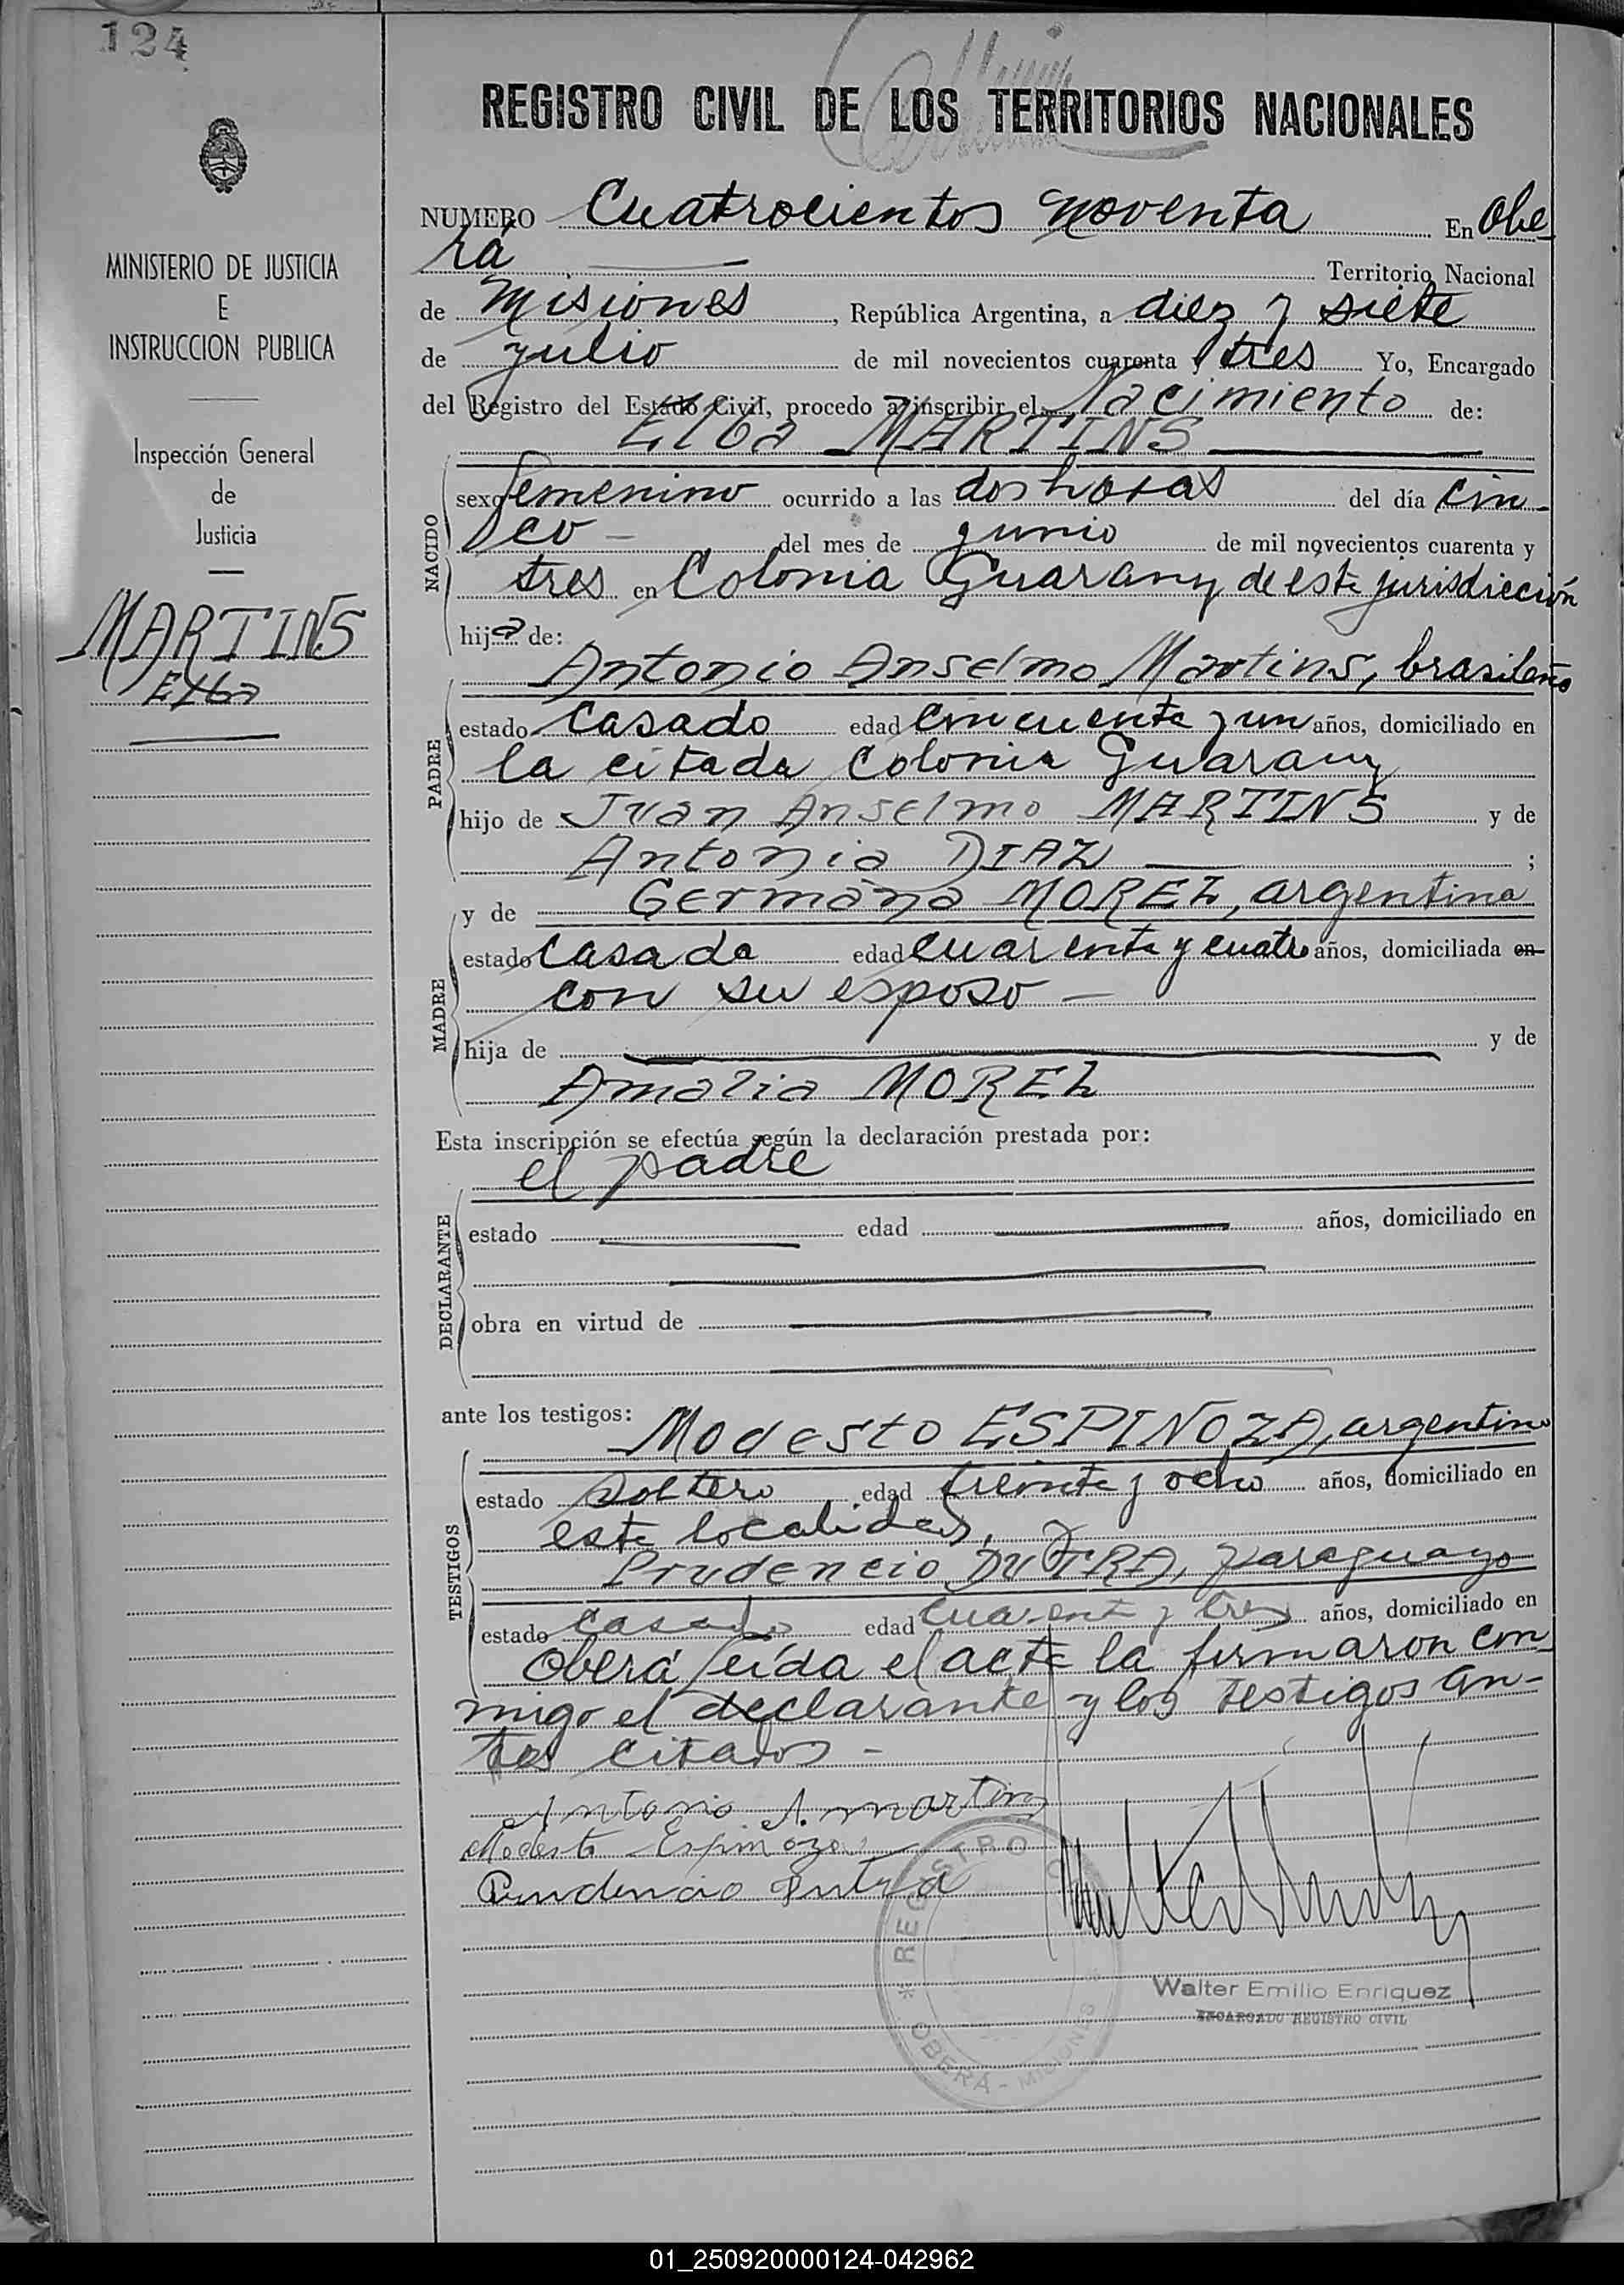 124
MINISTERIO DE JUSTICIA
E
INSTRUCCION PUBLICA
Inspección General
de
Justicia
MARTINS
Elba
REGISTRO CIVIL DE LOS TERRITORIOS NACIONALES
NUMERO Cuatrocientos noventa En Obe-
rá Territorio Nacional
de Misiones, República Argentina, a diez y siete
de julio de mil novecientos cuarenta y tres Yo, Encargado
del Registro del Estado Civil, procedo a inscribir el Nacimiento de:
Elba MARTINS
NACIDO
sexo femenino ocurrido a las dos horas del día cin-
co - del mes de junio de mil novecientos cuarenta y
tres en Colonia Guarany de este jurisdicción
hija de:
Antonio Anselmo Martins, brasileño
PADRE
estado casado edad cincuenta y un años, domiciliado en
la citada Colonia Guarany
hijo de Juan Anselmo MARTINS y de
Antonia DIAZ ;
y de Germana MOREL, argentina
MADRE
estado casada edad cuarenta y cuatro años, domiciliada en
con su esposo -
hija de y de
Amalia MOREL
Esta inscripción se efectúa según la declaración prestada por:
el padre
DECLARANTE
estado edad años, domiciliado en
obra en virtud de
ante los testigos:
Modesto ESPINOZA, argentino
TESTIGOS
estado soltero edad treinta y ocho años, domiciliado en
esta localidad,
Prudencio DUTRA, paraguayo
estado casado edad cuarenta y tres años, domiciliado en
Oberá leída el acta la firmaron con-
migo el declarante y los testigos an-
tes citados -
Antonio A. Martins
Modesto Espinoza
Prudencio Dutra
REGISTRO
OBERÁ - MISIONES
Walter Emilio Enriquez
ENCARGADO REGISTRO CIVIL
01_250920000124-042962